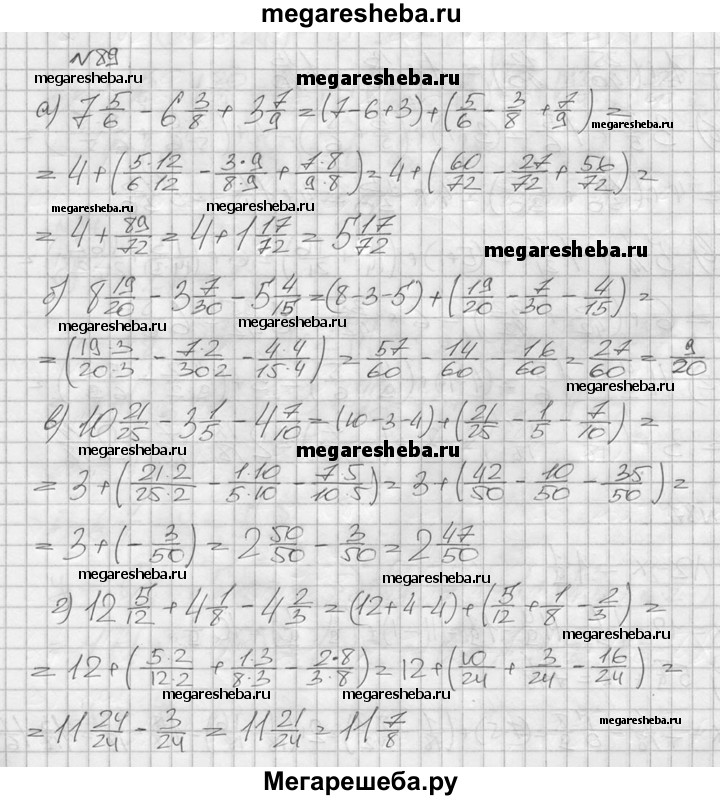 megaresheba.ru
№89
megaresheba.ru megaresheba.ru
а) 7 5/6 - 6 3/8 + 3 7/9 = (7-6+3) + (5/6 - 3/8 + 7/9) =
megaresheba.ru
= 4 + (5·12/6·12 - 3·9/8·9 + 7·8/9·8) = 4 + (60/72 - 27/72 + 56/72) =
megaresheba.ru megaresheba.ru
= 4 + 89/72 = 4 + 1 17/72 = 5 17/72
megaresheba.ru
б) 8 19/20 - 3 7/30 - 5 4/15 = (8-3-5) + (19/20 - 7/30 - 4/15) =
megaresheba.ru megaresheba.ru
= (19·3/20·3 - 7·2/30·2 - 4·4/15·4) = 57/60 - 14/60 - 16/60 = 27/60 = 9/20
megaresheba.ru
в) 10 21/25 - 3 1/5 - 4 7/10 = (10-3-4) + (21/25 - 1/5 - 7/10) =
megaresheba.ru megaresheba.ru
= 3 + (21·2/25·2 - 1·10/5·10 - 7·5/10·5) = 3 + (42/50 - 10/50 - 35/50) =
megaresheba.ru megaresheba.ru
= 3 + (- 3/50) = 2 50/50 - 3/50 = 2 47/50
megaresheba.ru megaresheba.ru
г) 12 5/12 + 4 1/8 - 4 2/3 = (12+4-4) + (5/12 + 1/8 - 2/3) =
megaresheba.ru
= 12 + (5·2/12·2 + 1·3/8·3 - 2·8/3·8) = 12 + (10/24 + 3/24 - 16/24) =
megaresheba.ru megaresheba.ru
= 11 24/24 - 3/24 = 11 21/24 = 11 7/8
megaresheba.ru
Мегарешеба.ру